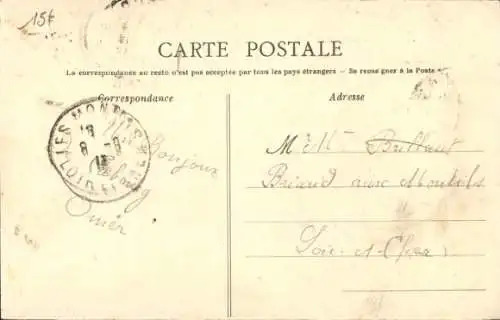 15€
CARTE POSTALE
La correspondance au recto n'est pas acceptée par tous les pays étrangers — Se renseigner à la Poste
Correspondance
Adresse
LES MONT
8
Bonjour
Omer
M et Mme Brillant
Briand aux Montils
Loir-et-Cher